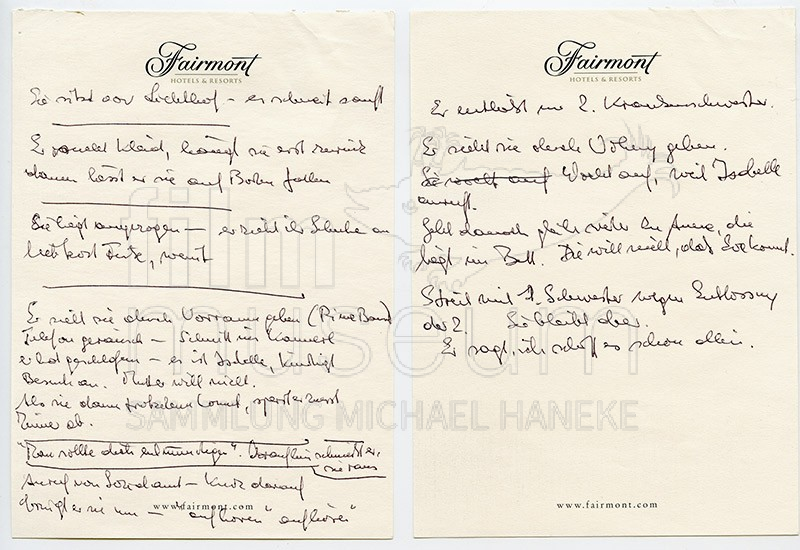 Fairmont
HOTELS & RESORTS
Sie sitzt vor – er schneit sanft
Er Kleid, hängt sie erst zurück
dann lässt er sie auf Boden fallen
Sie liegt angezogen – er zieht ihr Schuhe an
liebkost Füße, weint
Er sieht sie durch Vorraum gehen (Prime Band)
Telefongeräusch – Schnitt ins
er hat geschlafen – er ist Isabelle, kündigt
Besuch an. Mutter will nicht.
Als sie dann trotzdem kommt, sperrt er zuerst
Zimmer ab.
"Man sollte dich entmündigen". Daraufhin schmeißt er
sie raus
Anruf von Sozialamt – Kurz darauf
bringt er sie um – "aufhören" "aufhören"
www.fairmont.com
Fairmont
HOTELS & RESORTS
Er entlässt die 2. Krankenschwester.
Er sieht sie durch Wohnung gehen.
Sie wacht auf Wacht auf, weil Isabelle
anruft.
Geht danach gleich wieder zu Anne, die
liegt im Bett. Die will nicht, daß Eva kommt.
Streit mit 1. Schwester wegen Entlassung
der 2. Sie bleibt aber.
Er sagt, ich schaff es schon allein.
www.fairmont.com
film
museum
SAMMLUNG MICHAEL HANEKE